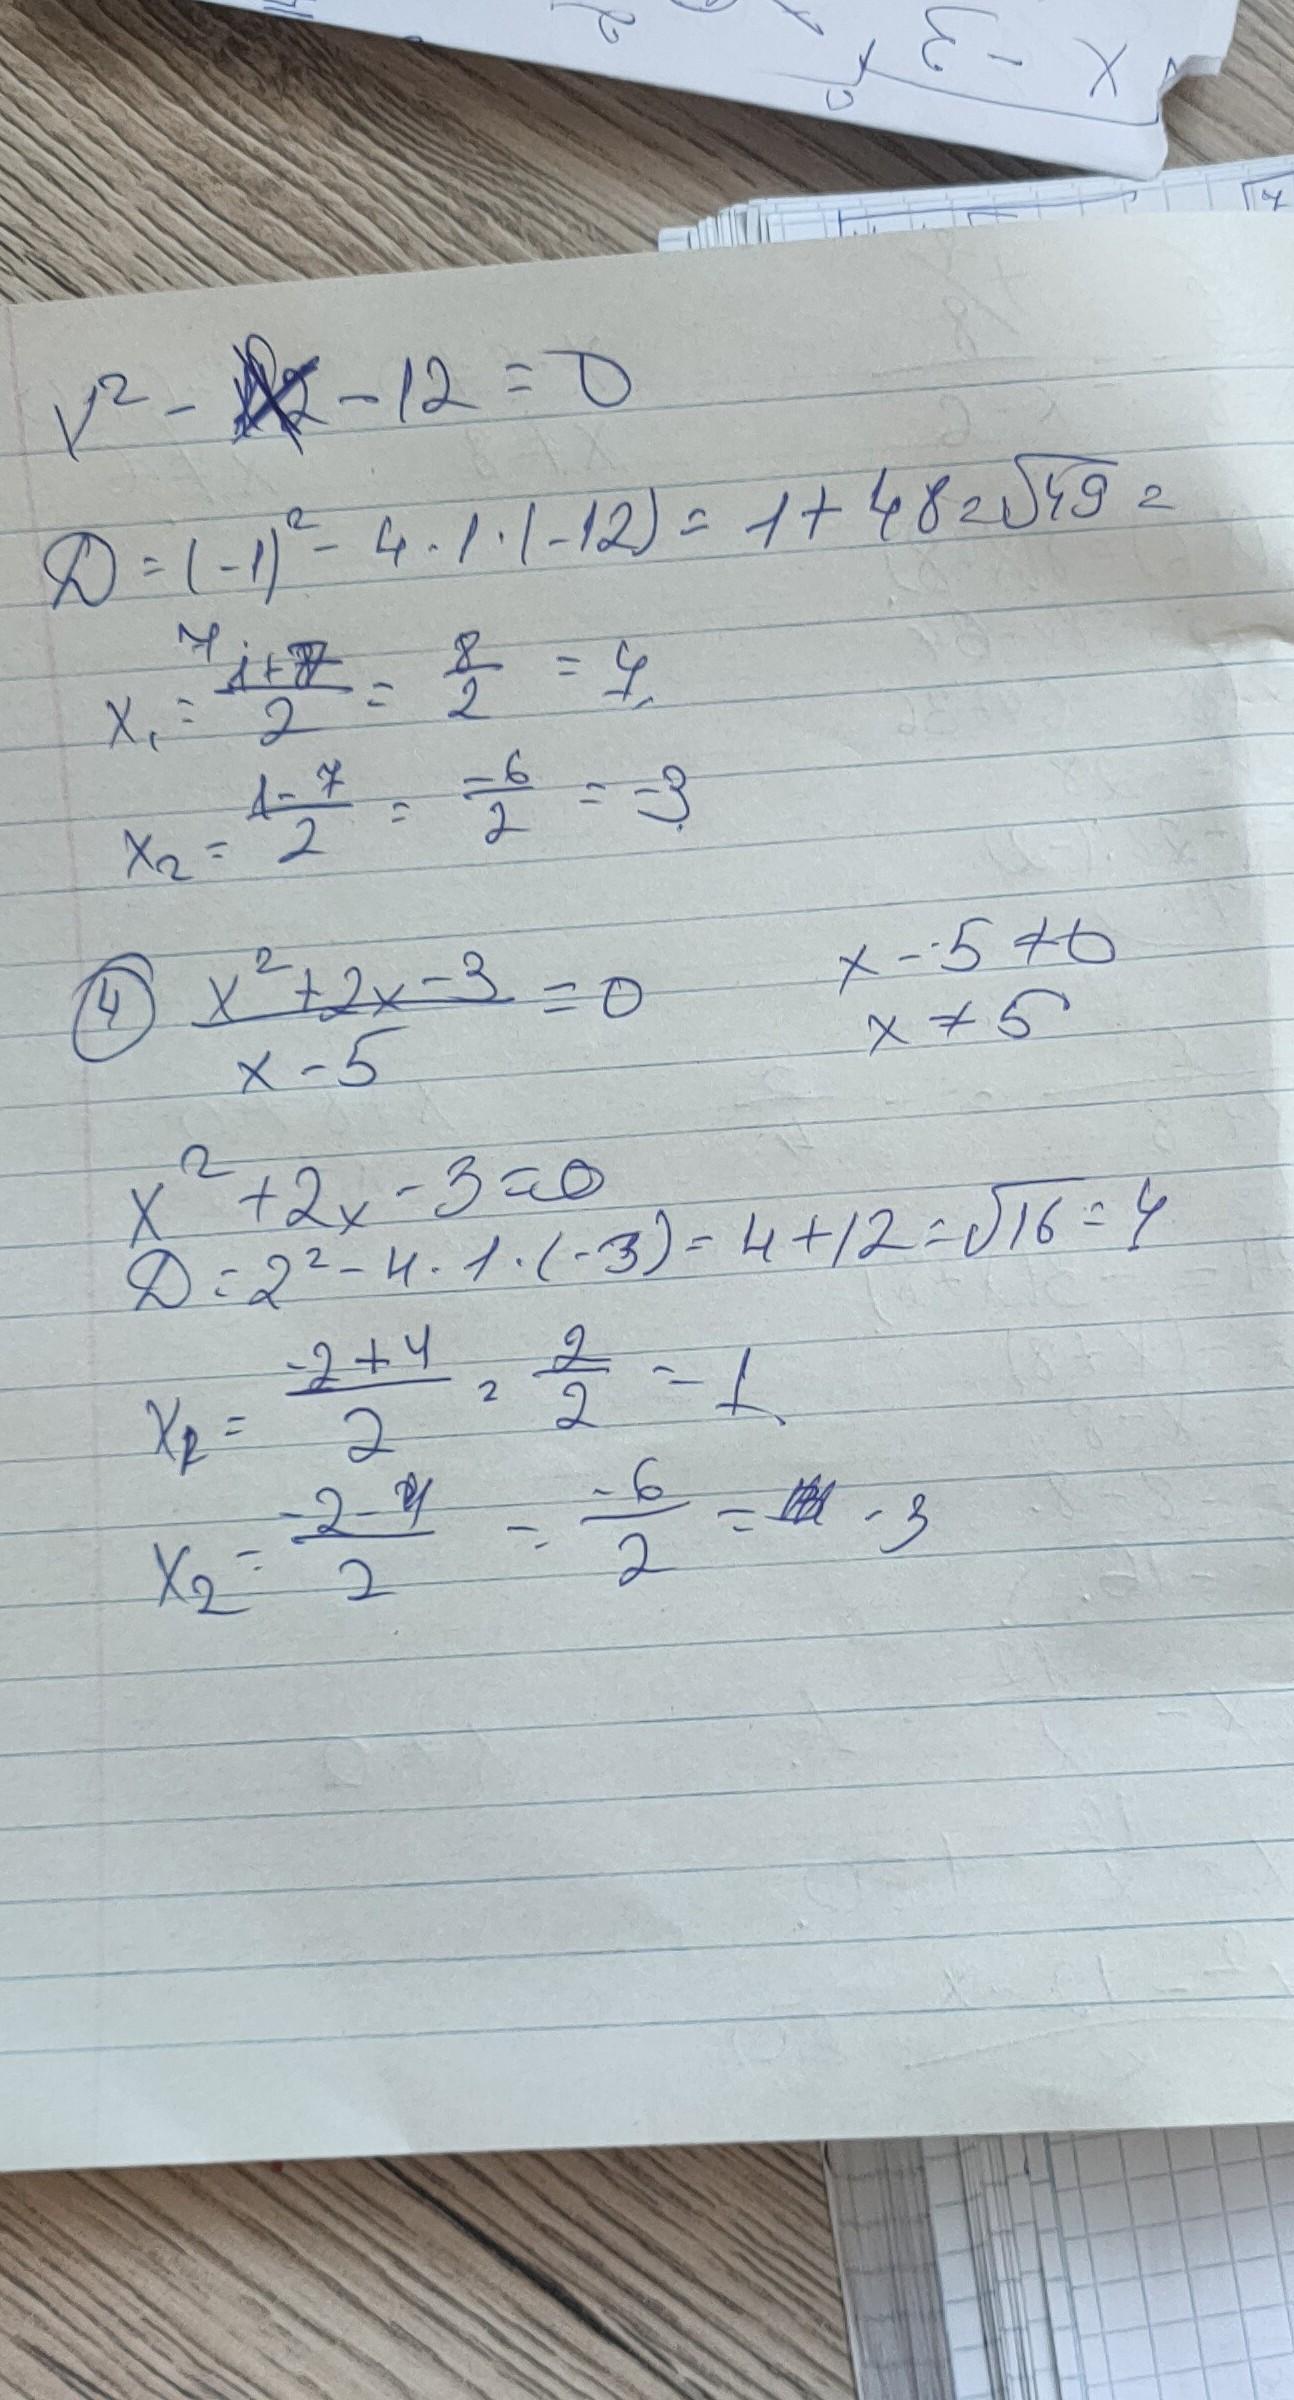 x - 3
x² - x - 12 = 0
D = (-1)² - 4 · 1 · (-12) = 1 + 48 = √49 =
7
x₁ = (1+7)/2 = 8/2 = 4
x₂ = (1-7)/2 = -6/2 = -3
④ (x²+2x-3)/(x-5) = 0
x - 5 ≠ 0
x ≠ 5
x² + 2x - 3 = 0
D = 2² - 4 · 1 · (-3) = 4 + 12 = √16 = 4
x₁ = (-2+4)/2 = 2/2 = 1
x₂ = (-2-4)/2 = -6/2 = -3